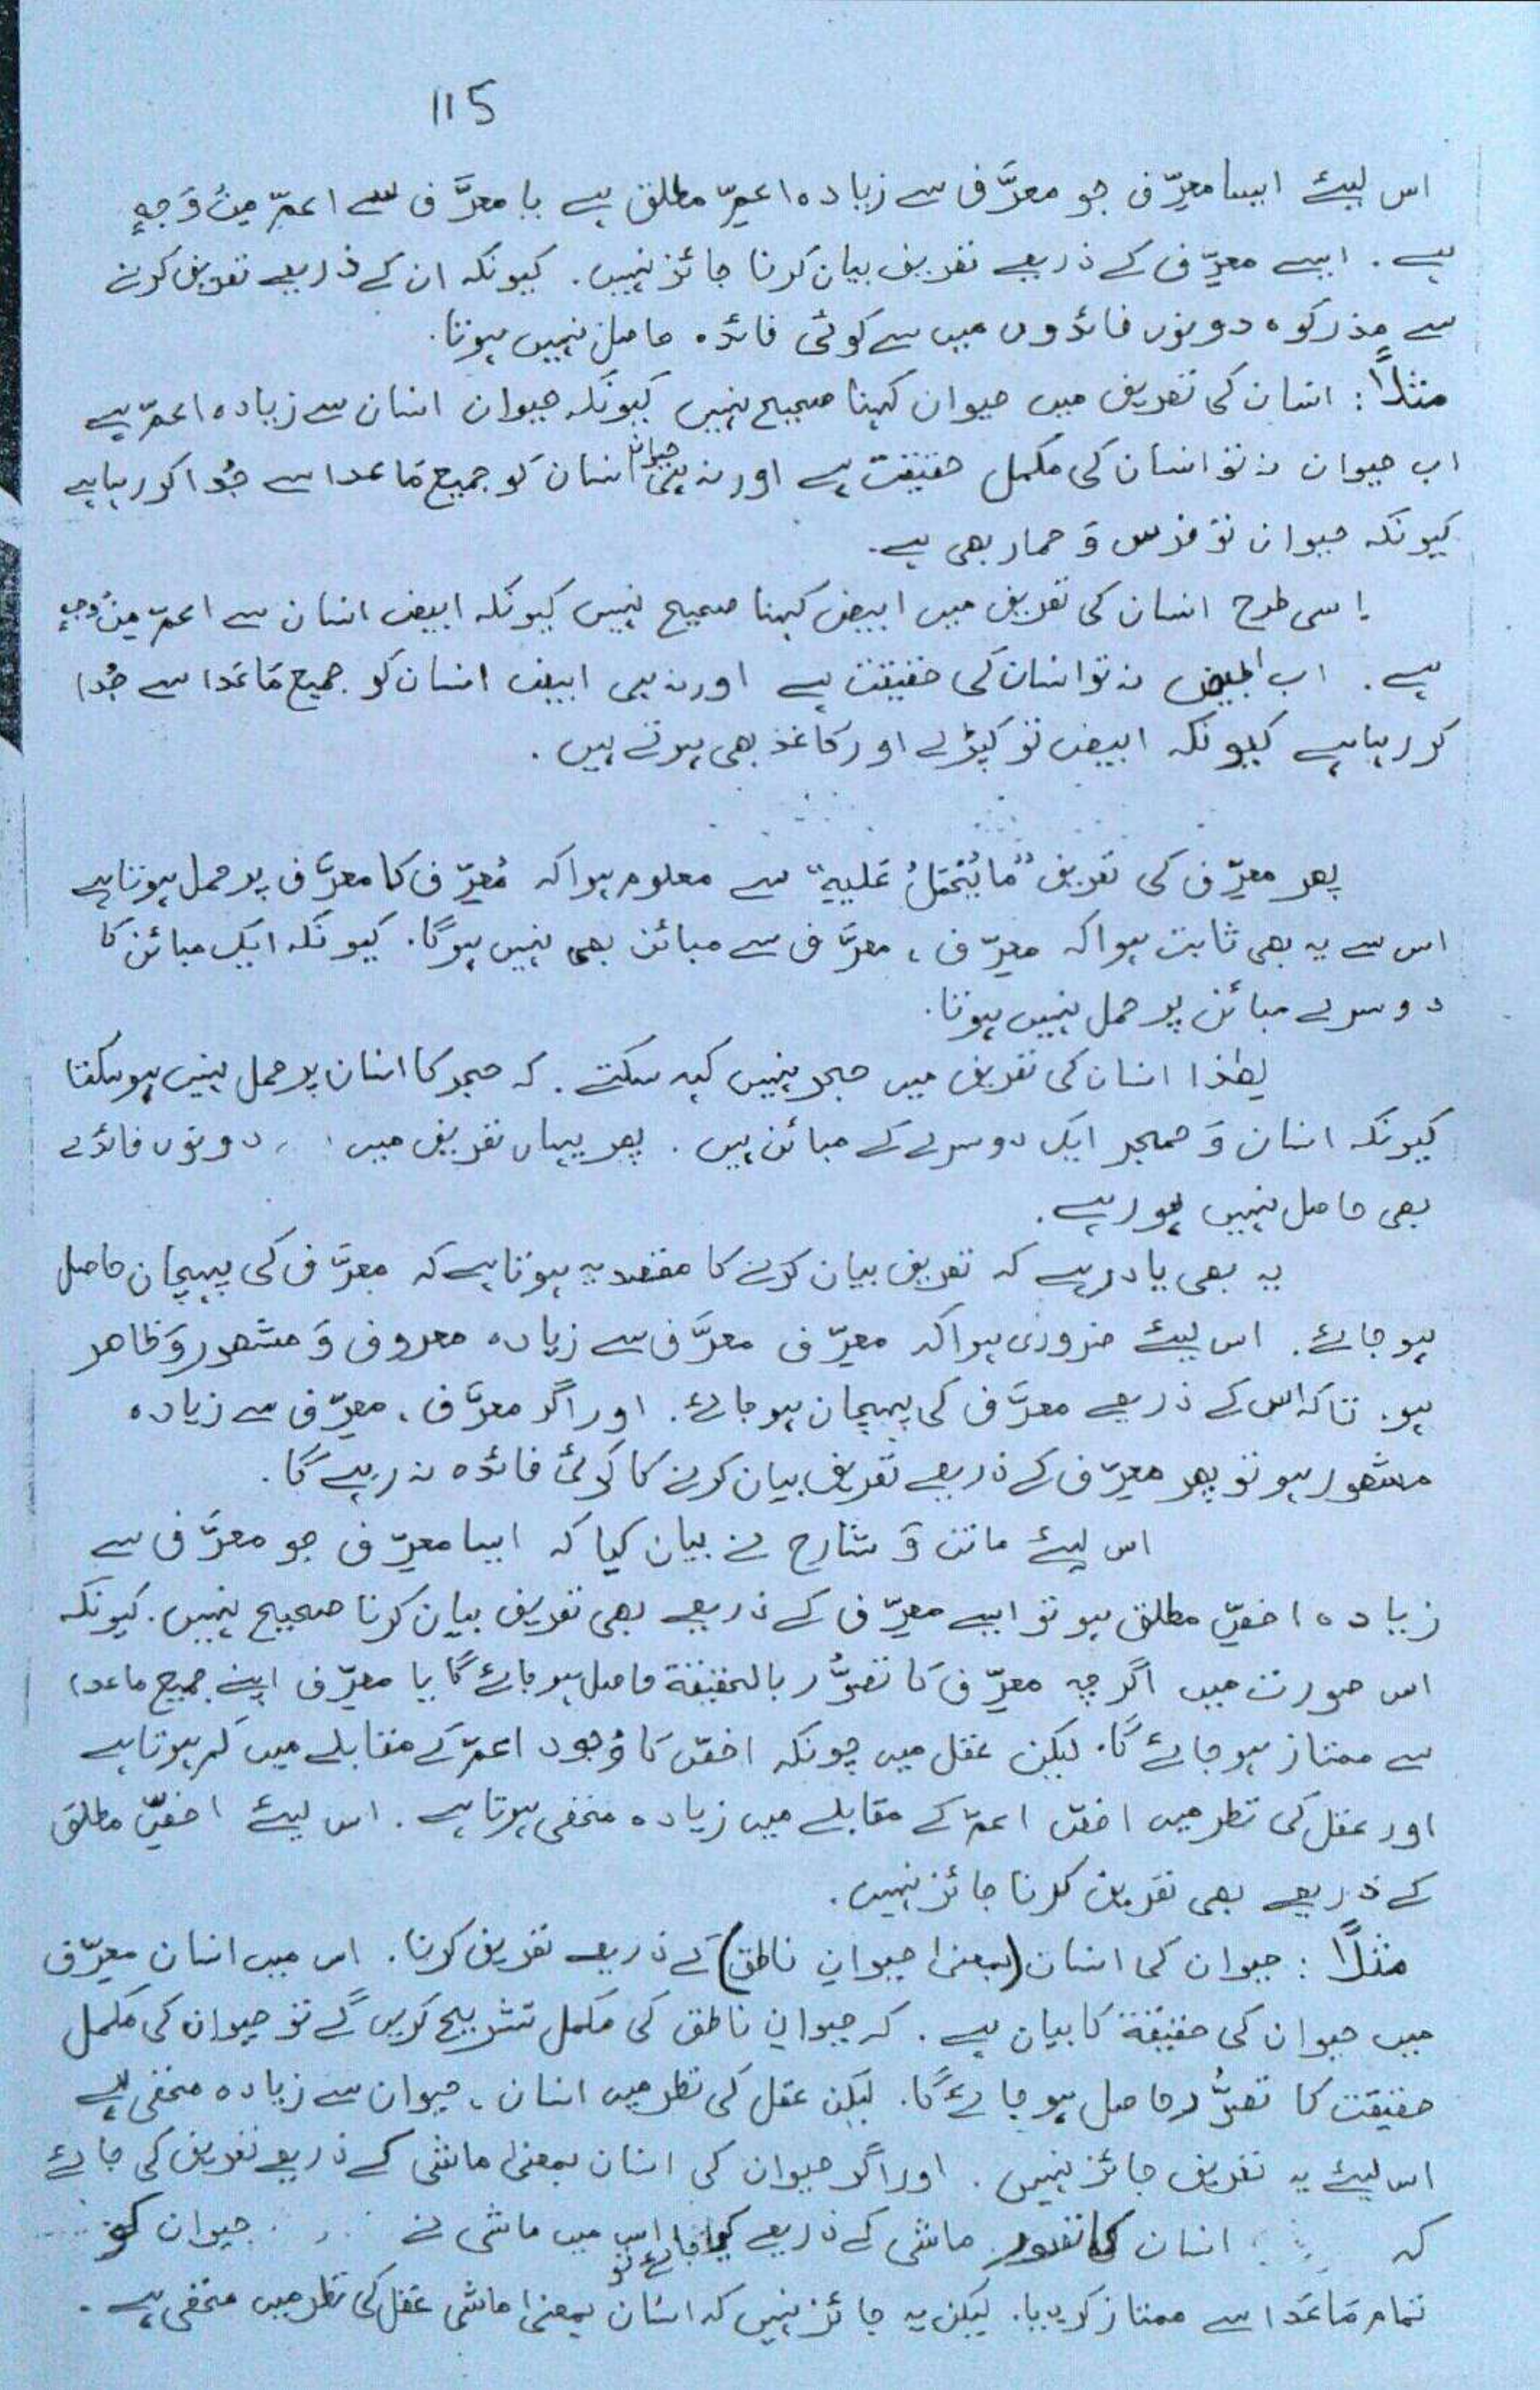 115
اس لیئے ایسا معرِّف جو معرَّف سے زیادہ اعمِّ مطلق ہے یا معرَّف سے اعمّ مِنْ وَجہٍ
ہے. ایسے معرِّف کے ذریعے تعریف بیان کرنا جائز نہیں. کیونکہ ان کے ذریعے تعریف کرنے
سے مذکورہ دونوں فائدوں میں سے کوئی فائدہ حاصل نہیں ہوتا.
مثلاً: انسان کی تعریف میں حیوان کہنا صحیح نہیں کیونکہ حیوان انسان سے زیادہ اعمّ ہے
اب حیوان نہ تو انسان کی مکمل حقیقت ہے اور نہ ہی حیوان انسان کو جمیع مَاعَدا سے جُدا کر رہا ہے
کیونکہ حیوان تو فرس وَ حمار بھی ہے.
اِسی طرح انسان کی تعریف میں ابیض کہنا صحیح نہیں کیونکہ ابیض انسان سے اعمّ مِنْ وجہٍ
ہے. اب ابیض نہ تو انسان کی حقیقت ہے اور نہ ہی ابیض انسان کو جمیع مَاعَدا سے جُدا
کر رہا ہے کیونکہ ابیض تو کپڑے اور کاغذ بھی ہوتے ہیں.
پھر معرِّف کی تعریف "مَا یُحْمَلُ عَلَیہِ" سے معلوم ہوا کہ مُعَرِّف کا معرَّف پر حمل ہوتا ہے
اس سے یہ بھی ثابت ہوا کہ معرِّف، معرَّف سے مبائن بھی نہیں ہوگا. کیونکہ ایک مبائن کا
دوسرے مبائن پر حمل نہیں ہوتا.
لھٰذا انسان کی تعریف میں حجر نہیں کہہ سکتے. کہ حجر کا انسان پر حمل نہیں ہو سکتا
کیونکہ انسان وَ حجر ایک دوسرے کے مبائن ہیں. پھر یہاں تعریف میں دونوں فائدے
بھی حاصل نہیں ہو رہے.
یہ بھی یاد رہے کہ تعریف بیان کرنے کا مقصد یہ ہوتا ہے کہ معرَّف کی پہچان حاصل
ہو جائے. اس لیئے ضروری ہوا کہ معرِّف معرَّف سے زیادہ معروف وَ مشھور وَ ظاھر
ہو. تاکہ اس کے ذریعے معرَّف کی پہچان ہو جائے. اور اگر معرَّف، معرِّف سے زیادہ
مشھور ہو تو پھر معرِّف کے ذریعے تعریف بیان کرنے کا کوئی فائدہ نہ رہے گا.
اس لیئے ماتن وَ شارح نے بیان کیا کہ ایسا معرِّف جو معرَّف سے
زیادہ اخصِّ مطلق ہو تو ایسے معرِّف کے ذریعے بھی تعریف بیان کرنا صحیح نہیں. کیونکہ
اس صورت میں اگرچہ معرَّف کا تصوُّر بالحقیقۃ حاصل ہو جائے گا یا معرَّف اپنے جمیع ماعدا
سے ممتاز ہو جائے گا. لیکن عقل میں چونکہ اخصّ کا وُجود اعمّ کے مقابلے میں کم ہوتا ہے
اور عقل کی نظر میں اخصّ اعمّ کے مقابلے میں زیادہ مخفی ہوتا ہے. اس لیئے اخصِّ مطلق
کے ذریعے بھی تعریف کرنا جائز نہیں.
مثلاً: حیوان کی انسان (بمعنیٰ حیوانِ ناطق) کے ذریعے تعریف کرنا. اس میں انسان معرِّف
میں حیوان کی حقیقۃ کا بیان ہے. کہ حیوانِ ناطق کی مکمل تشریح کریں گے تو حیوان کی مکمل
حقیقت کا تصوُّر حاصل ہو جائے گا. لیکن عقل کی نظر میں انسان، حیوان سے زیادہ مخفی ہے
اس لیئے یہ تعریف جائز نہیں. اور اگر حیوان کی انسان بمعنیٰ ماشی کے ذریعے تعریف کی جائے
کہ انسان کا تصور ماشی کے ذریعے کیا جائے تو اس میں ماشی نے حیوان کو
تمام مَاعَدا سے ممتاز کر دیا. لیکن یہ جائز نہیں کہ انسان بمعنیٰ ماشی عقل کی نظر میں مخفی ہے.